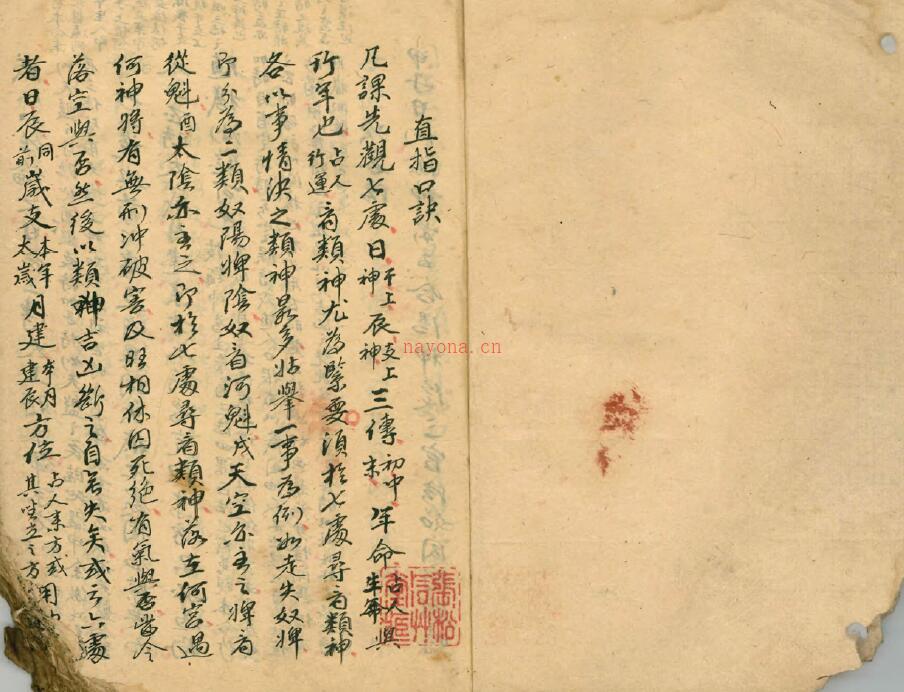 直指口訣
凡課先觀七處日干上神辰支上神三傳初中末年命占人生年與
行年也占人行運看類神尤為緊要須於七處尋看類神
各以事情決之類神最多姑舉一事為例如走失奴婢
即分為二類奴陽婢陰奴看河魁戌天空亦主之婢看
從魁酉太陰亦主之即於七處尋看類神落在何宮遇
何神將有無刑冲破害及旺相休囚死絕有氣與否當今
落空與否然後以類神吉凶斷之自無失矣或云六處
者日辰同前歲支本年太歲月建本月建辰方位占人來方或其坐立之方用
nayona.cn